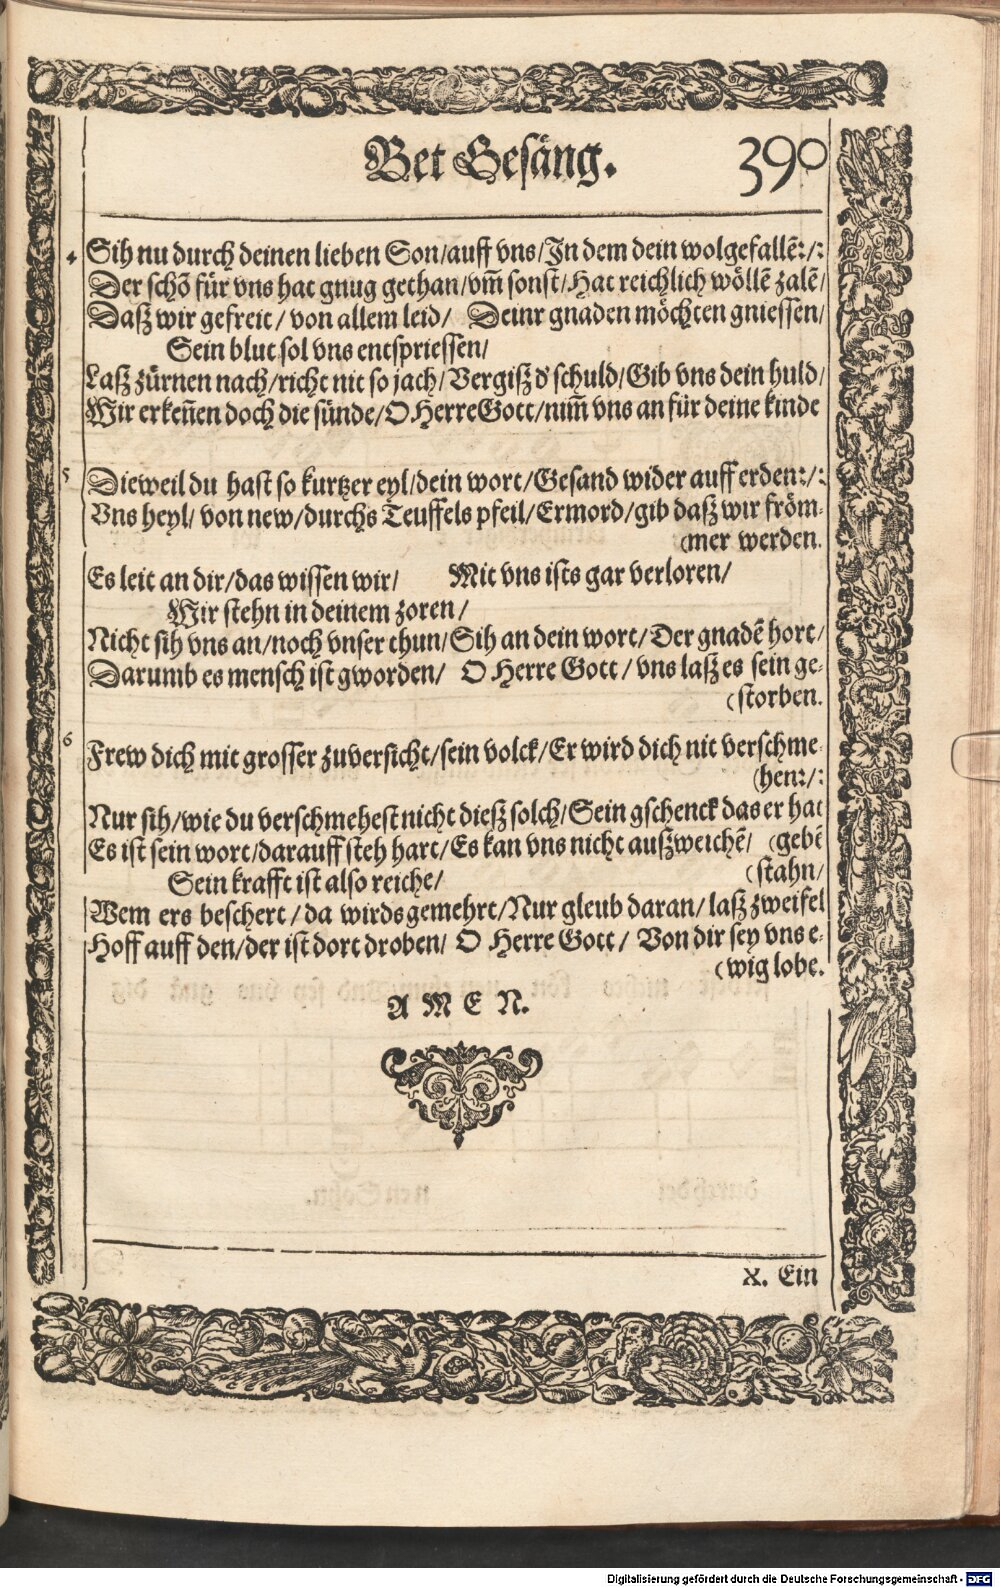 Bet Gesäng. 390
4 Sih nu durch deinen lieben Son/auff vns/In dem dein wolgefallẽ:/:
Der schõ für vns hat gnug gethan/vm̃ sonst/Hat reichlich wöllẽ zalẽ/
Daß wir gefreit/ von allem leid/ Deinr gnaden möchten gniessen/
Sein blut sol vns entspriessen/
Laß zürnen nach/richt nit so jach/Vergiß d' schuld/Gib vns dein huld/
Wir erkeñen doch die sünde/O HerreGott/nim̃ vns an für deine kinde
5 Dieweil du hast so kurtzer eyl/dein wort/Gesand wider auff erden:/:
Vns heyl/ von new/durchs Teuffels pfeil/Ermord/gib daß wir fröm-
(mer werden.
Es leit an dir/das wissen wir/ Mit vns ists gar verloren/
Wir stehn in deinem zoren/
Nicht sih vns an/noch vnser thun/Sih an dein wort/Der gnadẽ hort/
Darumb es mensch ist gworden/ O Herre Gott/ vns laß es sein ge-
(storben.
6 Frew dich mit grosser zuversicht/sein volck/Er wird dich nit verschme-
(hen:/:
Nur sih/wie du verschmehest nicht dieß solch/Sein gschenck das er hat
Es ist sein wort/darauff steh hart/Es kan vns nicht außweichẽ/ (gebẽ
Sein krafft ist also reiche/ (stahn/
Wem ers beschert/da wirds gemehrt/Nur gleub daran/laß zweifel
Hoff auff den/der ist dort droben/ O Herre Gott/ Von dir sey vns e-
(wig lobe.
A M E N.
X. Ein
Digitalisierung gefördert durch die Deutsche Forschungsgemeinschaft - DFG